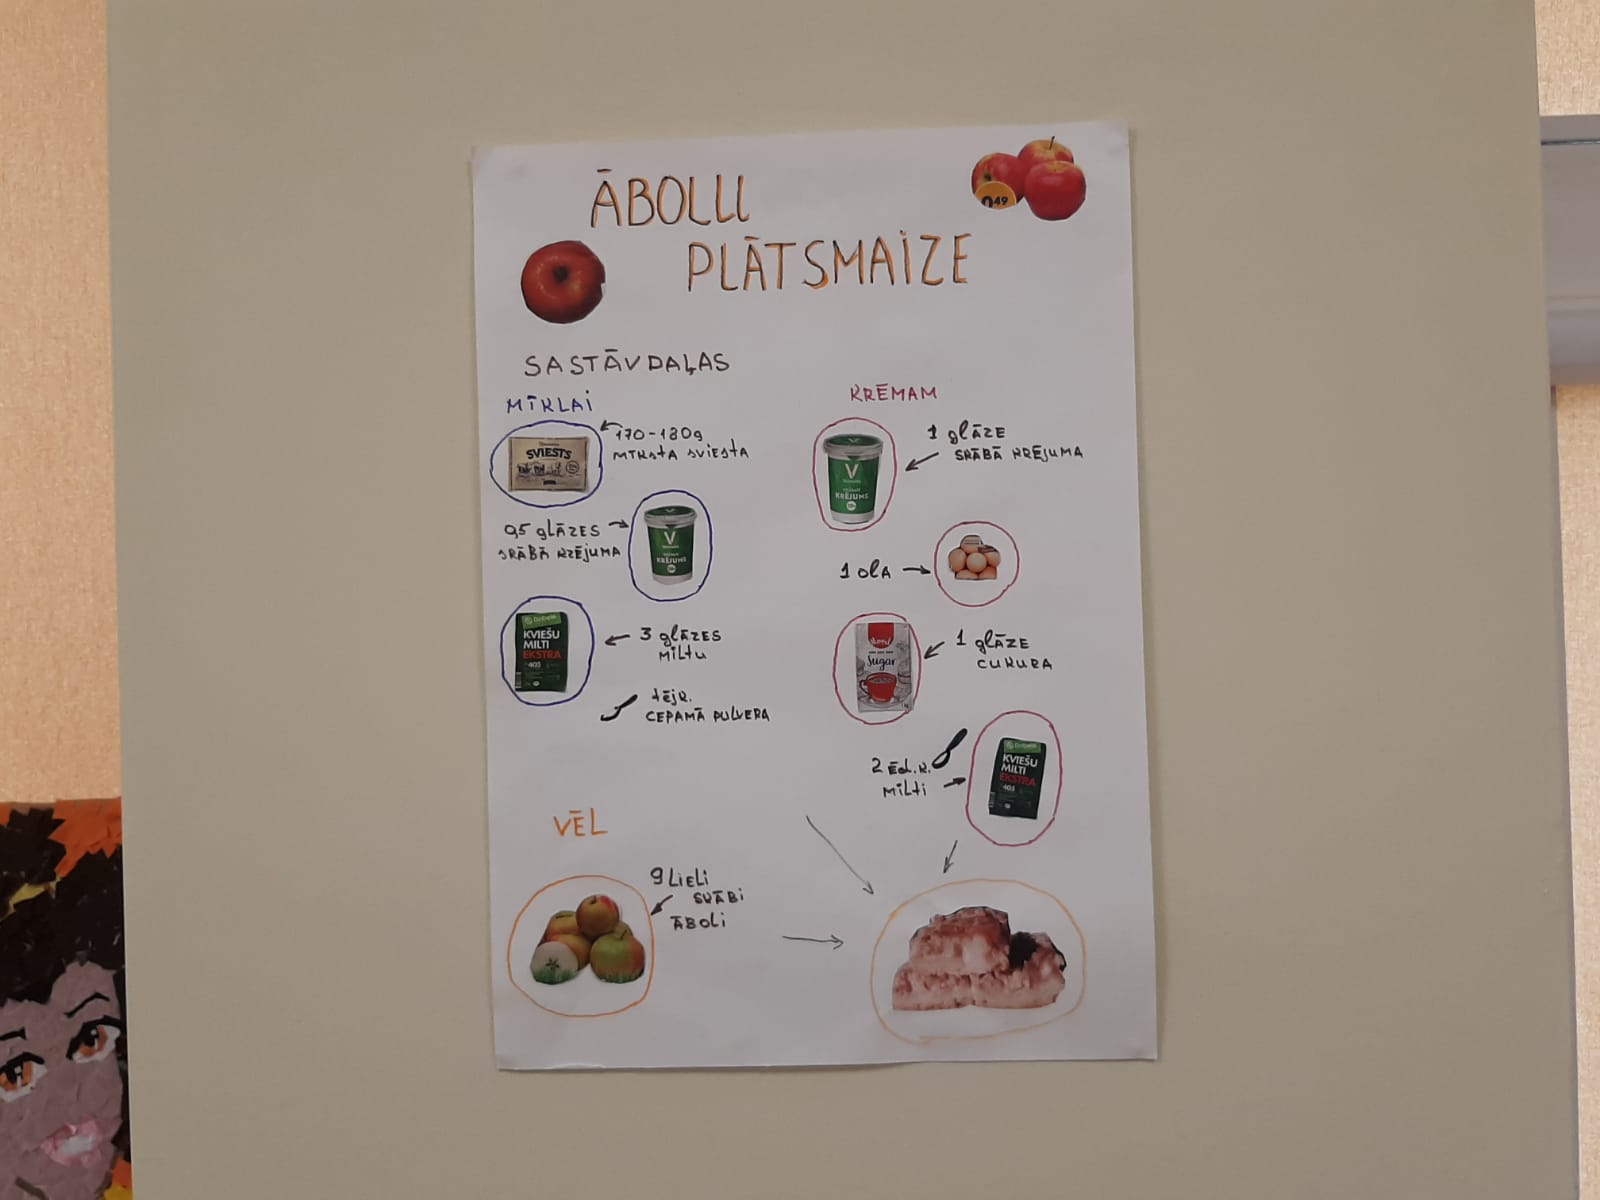 ĀBOLU
PLĀTSMAIZE
0.49
SASTĀVDAĻAS
MĪKLAI
170-180g
MĪKSTA SVIESTA
SVIESTS
0,5 glĀZES
SKĀBĀ KRĒJUMA
V
KRĒJUMS
KVIEŠU
MILTI
EKSTRA
405
3 glĀZES
MiltU
tĒJK.
CEPAMĀ PULVERA
KRĒMAM
1 glĀZE
SKĀBĀ KRĒJUMA
V
KRĒJUMS
1 OLA
Sugar
1 glĀZE
CUKURA
2 ĒD.K.
MILTI
KVIEŠU
MILTI
EKSTRA
405
VĒL
9 LIELI
SKĀBI
ĀBOLI